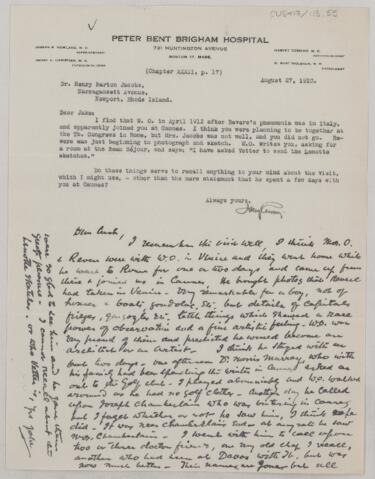 CUS417/118.55
PETER BENT BRIGHAM HOSPITAL
721 HUNTINGTON AVENUE
BOSTON 17, MASS.
JOSEPH B. HOWLAND, M.D.
HENRY A. CHRISTIAN, M.D.
HARVEY CUSHING, M.D.
(Chapter XXXII, p. 17)
August 27, 1920.
Dr. Henry Barton Jacobs,
Narragansett Avenue,
Newport, Rhode Island.
Dear Jakes:
I find that W.O. in April 1912 after Revere's pneumonia was in Italy,
and apparently joined you at Cannes. I think you were planning to be together at
the Tb. Congress in Rome, but Mrs. Jacobs was not well, and you did not go. Re-
vere was just beginning to photograph and sketch. W.O. writes you, asking for
a room at the Beau Séjour, and says: "I have asked Vetter to send the Lamotte
sketches."
Do these things serve to recall anything to your mind about the visit,
which I might use, - other than the mere statement that he spent a few days with
you at Cannes?
Always yours,
Dear Cush,
I remember the visit well, I think Mrs. O.
& Revere were with W.O. in Venice and they went home while
he went to Rome for one or two days and came up from
there & joined us in Cannes. He bought photos that Revere
had taken in Venice - very remarkable for a boy, not of
houses & boats, gondolas, &c - but details of capitals
friezes, gargoyles &c, little things which showed a rare
power of observation and a fine artistic feeling - W.O. was
very proud of them and predicted he would become an
architect or an artist. I think he stayed with us
but two days - one afternoon Dr. Norris Murray, who with
his family had been spending the winter in Cannes asked us
out to the Golf club - I played abominably and W.O. walked
around as he had no golf clothes - another day he called
upon Joseph Chamberlain who was wintering in Cannes
but I forget whether or not he saw him, I think he
did - it was near Chamberlain's end - at any rate he saw
Mrs. Chamberlain - I went with him to call upon
two or three doctor friends, one my old chief I recall,
another who had been at Davos with Tb. but was
now much better - Their names are gone, but all
were so glad to see him and he gave them
great pleasure - I cannot recall about the
Lamotte sketches - or who Vetter is,